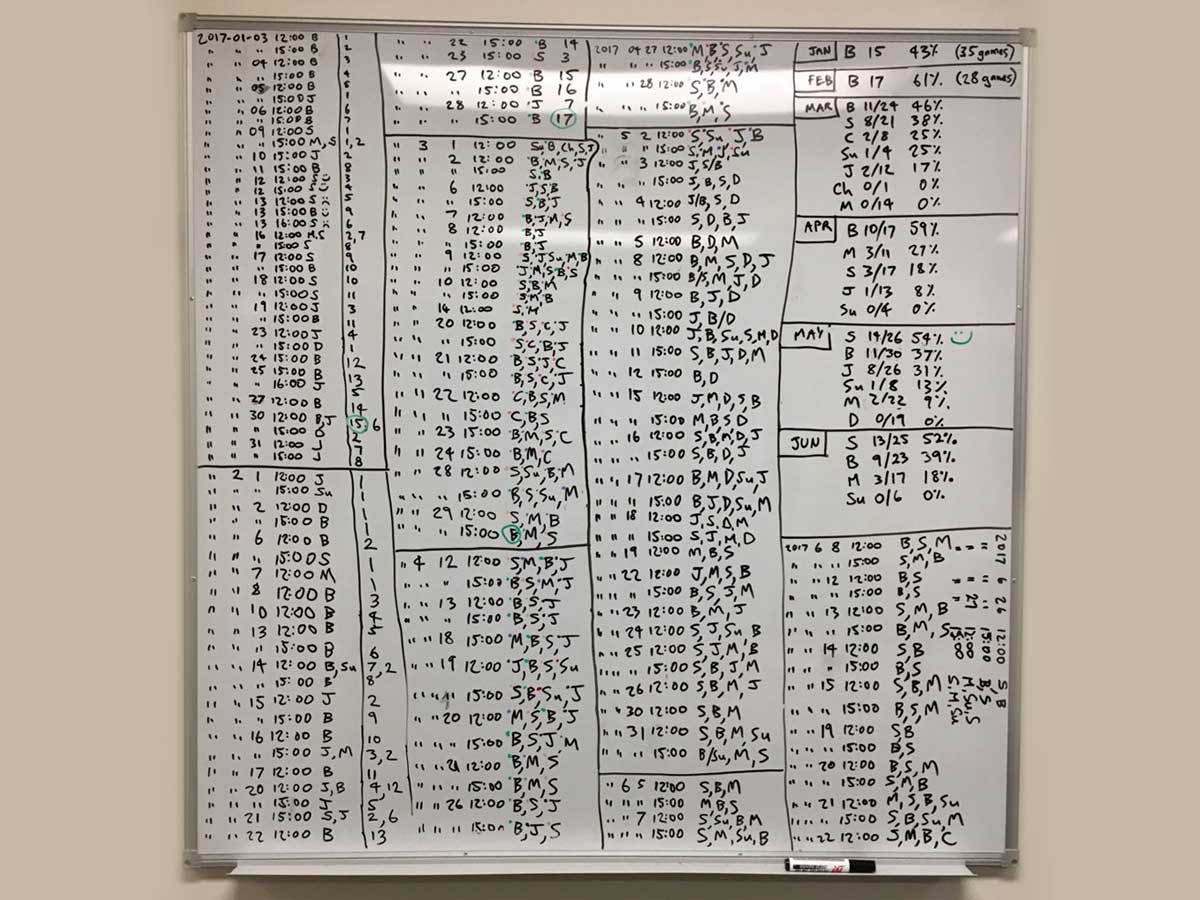 2017-01-03 12:00 B 1
" " " 15:00 B 2
" " 04 12:00 B 3
" " " 15:00 B 4
" " 05 12:00 B 5
" " " 15:00 J 1
" " 06 12:00 B 6
" " " 15:00 B 7
" " 09 12:00 S 1
" " " 15:00 M,S 1,2
" " 10 15:00 J 2
" " 11 15:00 B 8
" " 12 12:00 S 3
" " 12 15:00 S 4
" " 13 12:00 S 5
" " 13 15:00 B 9
" " 13 16:00 S 6
" " 16 12:00 M,S 2,7
" " " 15:00 S 8
" " 17 12:00 S 9
" " " 15:00 B 10
" " 18 12:00 S 10
" " " 15:00 S 11
" " 19 12:00 J 3
" " " 15:00 B 11
" " 23 12:00 J 4
" " " 15:00 D 1
" " 24 15:00 B 12
" " 25 15:00 B 13
" " " 16:00 J 5
" " 27 12:00 B 14
" " 30 12:00 B,J 15,6
" " " 15:00 D 2
" " 31 12:00 J 7
" " " 15:00 J 8
" 2 1 12:00 J 1
" " " 15:00 Su 1
" " 2 12:00 D 1
" " " 15:00 B 1
" " 6 12:00 B 2
" " " 15:00 S 1
" " 7 12:00 M 1
" " 8 12:00 B 3
" " 10 12:00 B 4
" " 13 12:00 B 5
" " " 15:00 B 6
" " 14 12:00 B,Su 7,2
" " " 15:00 B 8
" " 15 12:00 J 2
" " " 15:00 B 9
" " 16 12:00 B 10
" " " 15:00 J,M 3,2
" " 17 12:00 B 11
" " 20 12:00 J,B 4,12
" " " 15:00 J 5
" " 21 15:00 S,J 2,6
" " 22 12:00 B 13
" " 22 15:00 B 14
" " 23 15:00 S 3
" " 27 12:00 B 15
" " " 15:00 B 16
" " 28 12:00 J 7
" " " 15:00 B 17
" 3 1 12:00 Su,B,Ch,S,J
" " 2 12:00 B,M,S,J
" " " 15:00 S,B
" " 6 12:00 J,S,B
" " " 15:00 S,B,J
" " 7 12:00 B,J,M,S
" " 8 12:00 B,J
" " " 15:00 B,J
" " 9 12:00 S,J,Su,M,B
" " " 15:00 J,M,S,B,S
" " 10 12:00 S,B,M
" " " 15:00 S,M,B
" " 14 12:00 S,M
" " 20 12:00 B,S,C,J
" " " 15:00 S,C,B,J
" " 21 12:00 B,S,J,C
" " " 15:00 B,S,C,J
" " 22 12:00 C,B,S,M
" " " 15:00 C,B,S
" " 23 15:00 B,M,S,C
" " 24 15:00 B,M,C
" " 28 12:00 S,Su,B,M
" " " 15:00 B,S,Su,M
" " 29 12:00 S,M,B
" " " 15:00 B,M,S
" 4 12 12:00 S,M,B,J
" " " 15:00 B,S,M,J
" " 13 12:00 B,S,J
" " " 15:00 B,S,J
" " 18 15:00 M,B,S,J
" " 19 12:00 J,B,S,Su
" " " 15:00 S,B,Su,J
" " 20 12:00 M,S,B,J
" " " 15:00 B,S,J,M
" " 21 12:00 B,M,S
" " " 15:00 B,M,S
" " 26 12:00 B,S,J
" " " 15:00 B,J,S
2017 04 27 12:00 M,B,S,Su,J
" " " 15:00 B,S,Su,J,M
" " 28 12:00 S,B,M
" " " 15:00 B,M,S
" 5 2 12:00 S,Su,J,B
" " " 15:00 S,M,J,Su
" " 3 12:00 J,S/B
" " " 15:00 J,B,S,D
" " 4 12:00 J/B,S,D
" " " 15:00 S,D,B,J
" " 5 12:00 B,D,M
" " 8 12:00 B,M,S,D,J
" " " 15:00 B/S,M,J,D
" " 9 12:00 B,J,D
" " " 15:00 J,B/D
" " 10 12:00 J,B,Su,S,M,D
" " 11 15:00 S,B,J,D,M
" " 12 15:00 B,D
" " 15 12:00 J,M,D,S,B
" " " 15:00 M,B,S,D
" " 16 12:00 S,B,M,D,J
" " " 15:00 S,B,D,J
" " 17 12:00 B,M,D,Su,J
" " " 15:00 B,J,D,Su,M
" " 18 12:00 J,S,D,M
" " " 15:00 S,J,M,D
" " 19 12:00 M,B,S
" " 22 12:00 J,M,S,B
" " " 15:00 B,S,J,M
" " 23 12:00 B,M,J
" " 24 12:00 S,J,Su,B
" " 25 12:00 S,J,M,B
" " " 15:00 S,B,J,M
" " 26 12:00 S,B,M,J
" " 30 12:00 S,B,M
" " 31 12:00 S,B,M,Su
" " " 15:00 B/Su,M,S
" 6 5 12:00 S,B,M
" " " 15:00 M,B,S
" " 7 12:00 S,Su,B,M
" " " 15:00 S,M,Su,B
JAN B 15 43% (35 games)
FEB B 17 61% (28 games)
MAR B 11/24 46%
S 8/21 38%
C 2/8 25%
Su 1/4 25%
J 2/12 17%
Ch 0/1 0%
M 0/14 0%
APR B 10/17 59%
M 3/11 27%
S 3/17 18%
J 1/13 8%
Su 0/4 0%
MAY S 14/26 54%
B 11/30 37%
J 8/26 31%
Su 1/8 13%
M 2/22 9%
D 0/19 0%
JUN S 13/25 52%
B 9/23 39%
M 3/17 18%
Su 0/6 0%
2017 6 8 12:00 B,S,M
" " " 15:00 S,M,B
" " 12 12:00 B,S
" " " 15:00 B,S
" " 13 12:00 S,M,B
" " " 15:00 B,M,S
" " 14 12:00 S,B
" " " 15:00 B,S
" " 15 12:00 S,B,M
" " " 15:00 B,S,M
" " 19 12:00 S,B
" " " 15:00 B,S
" " 20 12:00 B,S,M
" " " 15:00 S,M,B
" " 21 12:00 M,S,B,Su
" " " 15:00 S,B,Su,M
" " 22 12:00 J,M,B,C
2017 6 26 12:00 S,B
" " " 15:00 B,S
" " 27 12:00 M,Su,S
" " " 15:00 S,M,Su